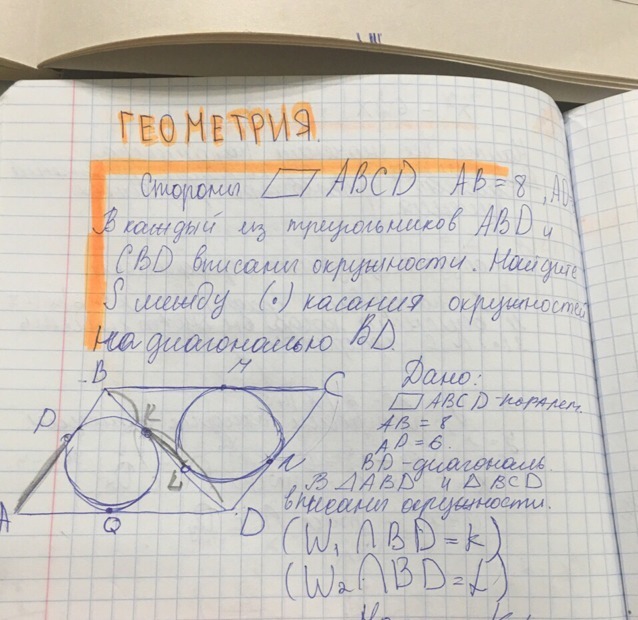 ГЕОМЕТРИЯ.
Стороны ▱ ABCD AB = 8, AD
В каждый из треугольников ABD и
CBD вписаны окружности. Найдите
S между (·) касания окружностей
на диагональю BD.
B M C
P K
L N
A Q D
Дано:
▱ ABCD-паралел.
AB = 8
AD = 6.
BD-диагональ.
В △ ABD и △ BCD
вписаны окружности.
(W₁ ∩ BD = k)
(W₂ ∩ BD = L)